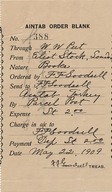 AINTAB ORDER BLANK
No. 388
Through W. W. Peet
From Bible House
Nature Books
Ordered by F. F. Goodsell
Send to F. F. Goodsell
Aintab, Turkey
By Parcel Post
Expense St 2.00
Charge to
F. F. Goodsell
Payment
Date May 22 1909
F. F. Goodsell TREAS.